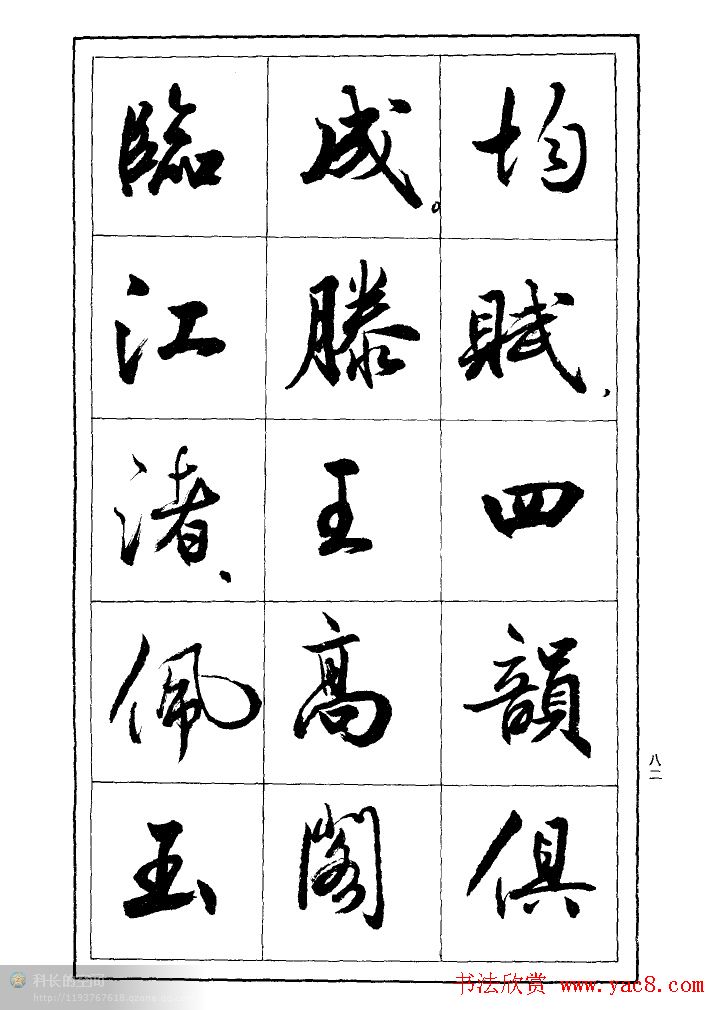 均賦，四韻俱
成。滕王高閣
臨江渚、佩玉
八二
科长的空间
http://1193767618.qzone.qq.com
书法欣赏 www.yac8.com